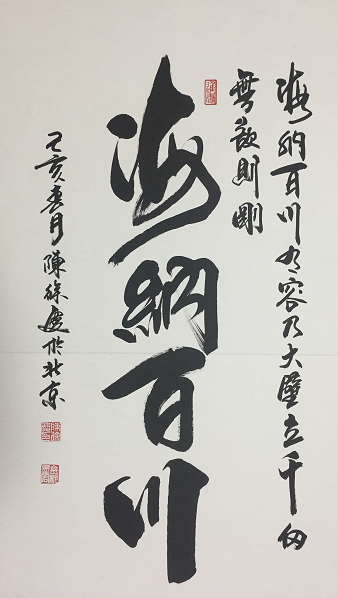 海納百川有容乃大壁立千仞
無欲則剛
海納百川
己亥春月陳徐慶於北京